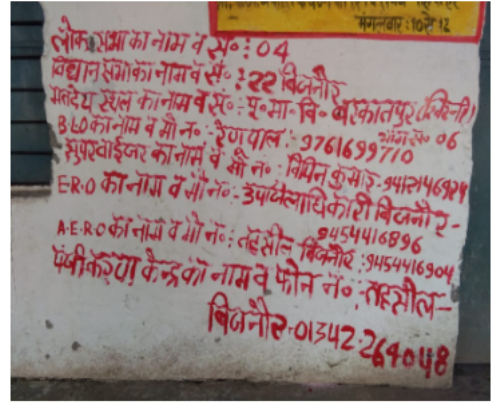 मंगलवार: 10 से 12
लोक सभा का नाम व सं०: 04
विधान सभा का नाम व सं०: 22 बिजनौर
मतदेय स्थल का नाम व सं०: पू० मा० वि० बरकातपुर
भाग सं० 06
B.L.O का नाम व मो नं०: रेणु पाल: 9761699710
सुपरवाईजर का नाम व मो नं० विपिन कुमार-
E.R.O का नाम व मो नं०- उपजिलाधिकारी बिजनौर-
9454416896
A.E.R.O का नाम व मो नं०: तहसील बिजनौर: 9454416904
पंजीकरण केन्द्र का नाम व फोन नं०:-तहसील-
बिजनौर-01342-264048